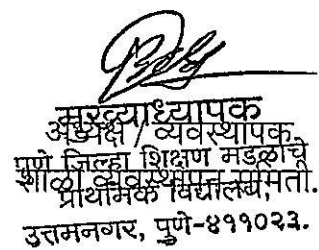 मुख्याध्यापक
अध्यक्ष / व्यवस्थापक
पुणे जिल्हा शिक्षण मंडळाचे
शाळा व्यवस्थापन समिती.
प्राथमिक विद्यालय,
उत्तमनगर, पुणे-४११०२३.